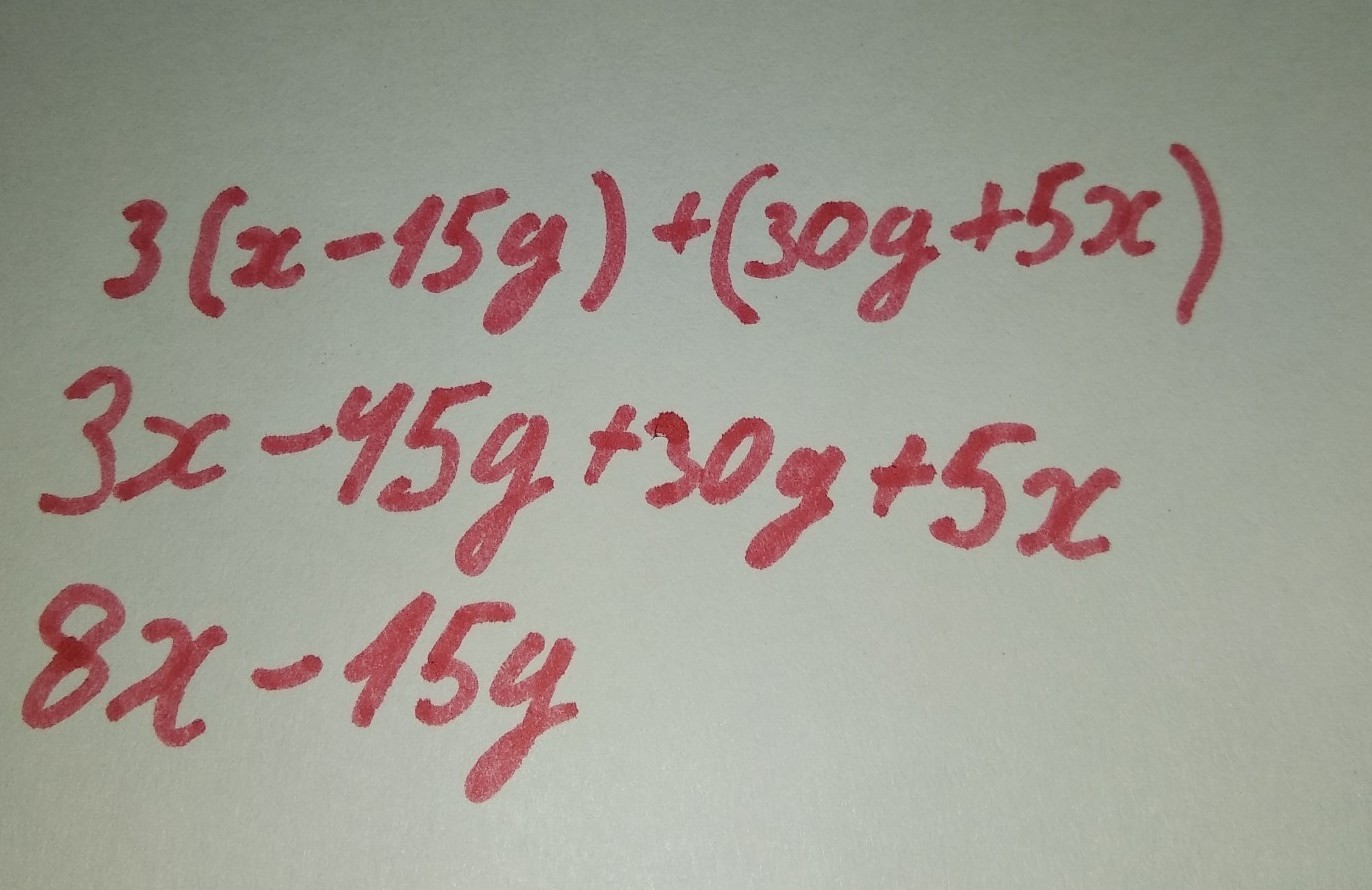 3(x-15y)+(30y+5x)
3x-45y+30y+5x
8x-15y